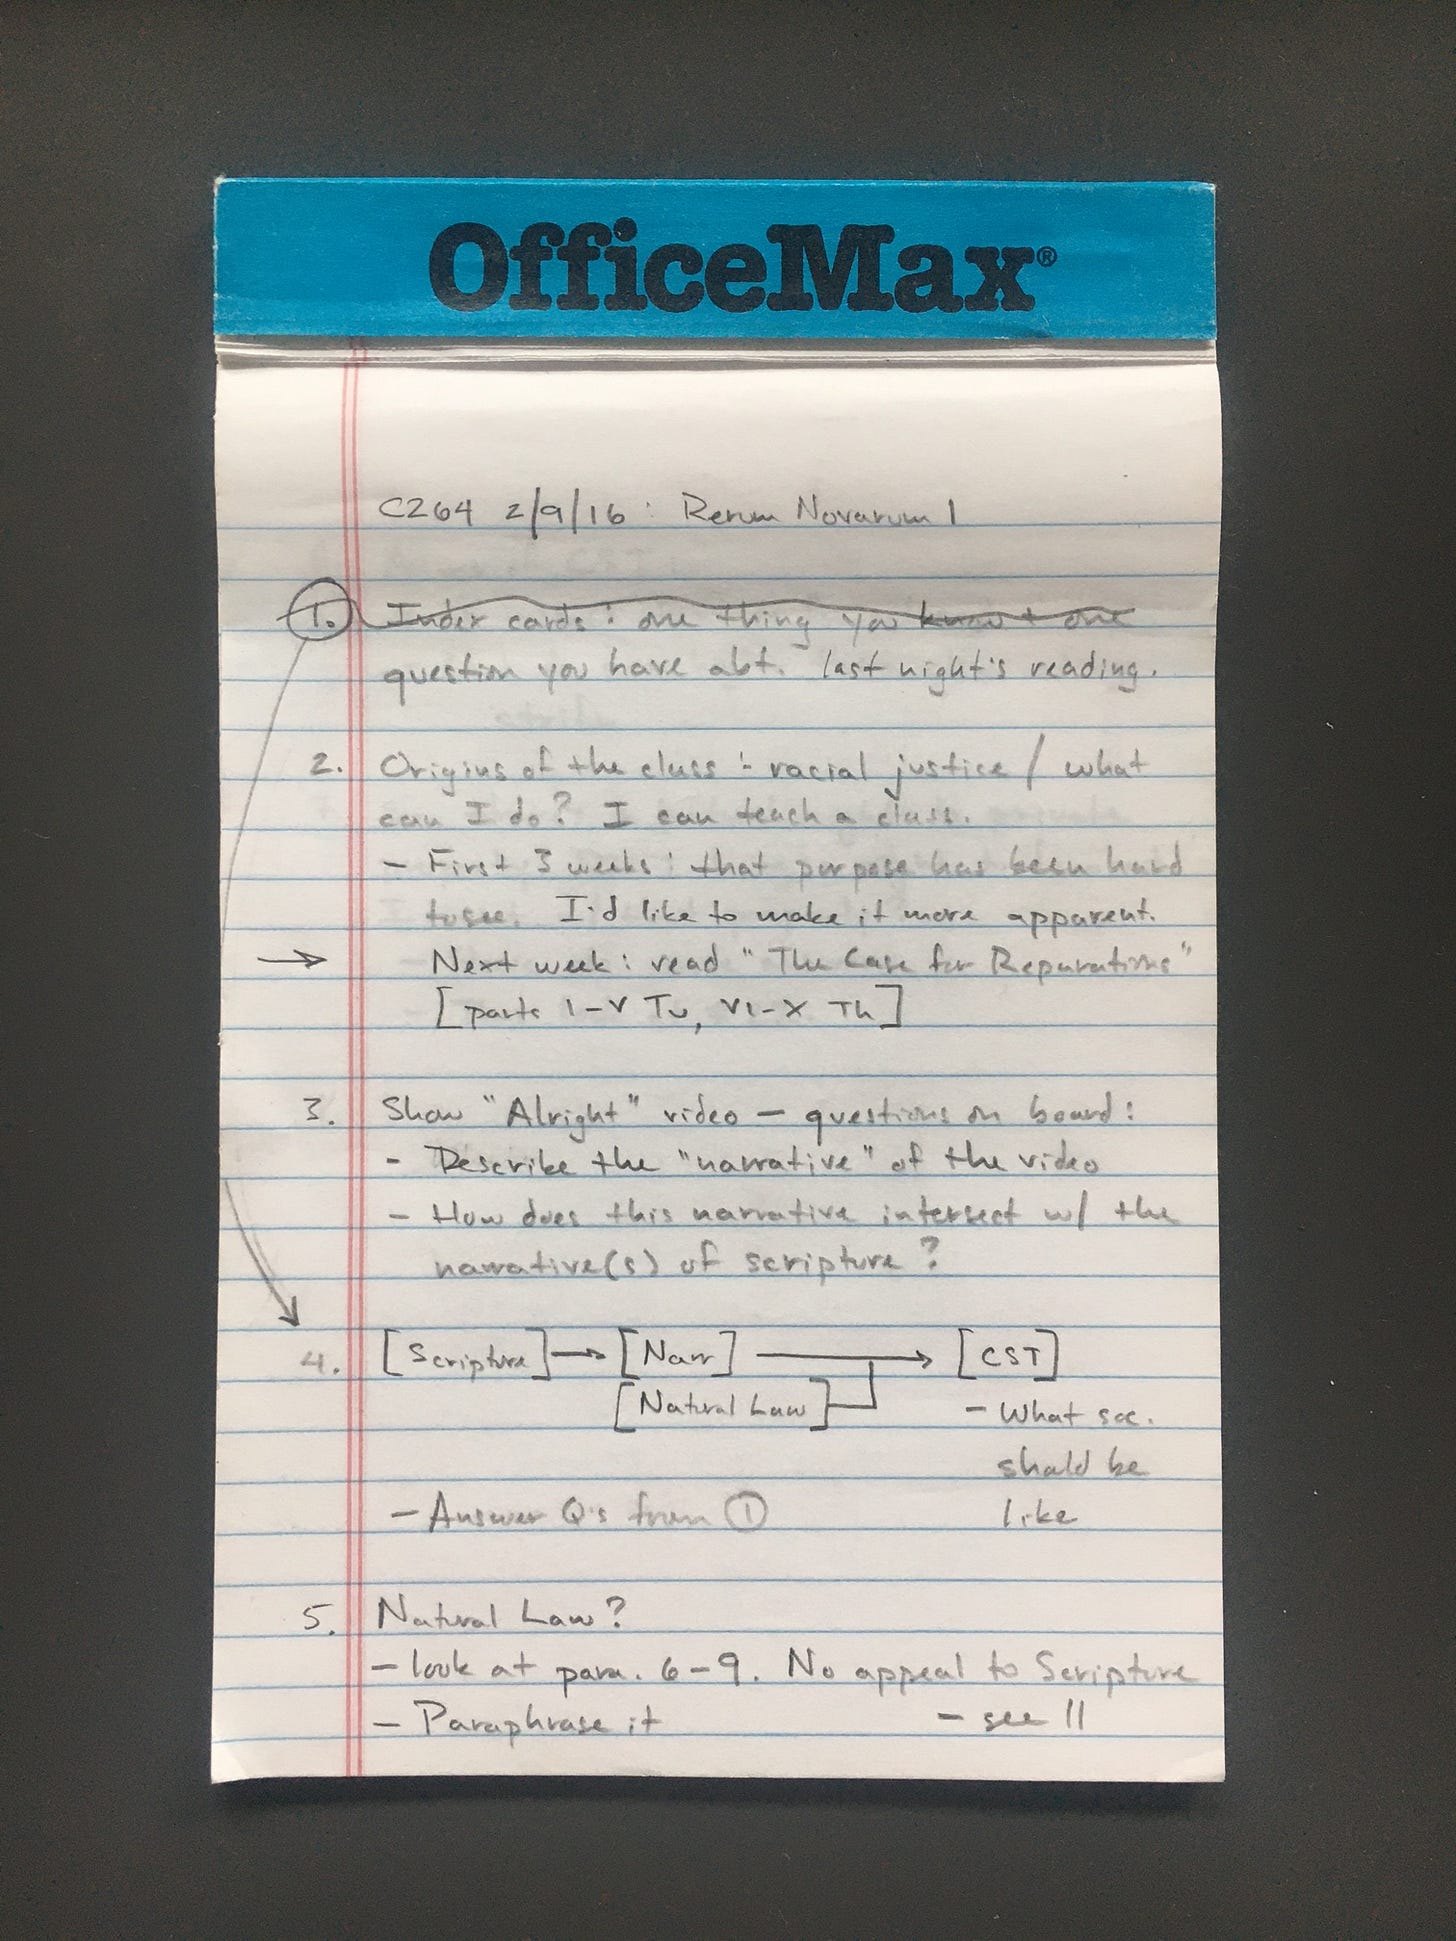 OfficeMax®
C264 2/9/16: Rerum Novarum 1
1. Index cards: one thing you know + one
question you have abt. last night's reading.
2. Origins of the class: racial justice / what
can I do? I can teach a class.
- First 3 weeks: that purpose has been hard
to see. I'd like to make it more apparent.
→ Next week: read "The Case for Reparations"
[parts 1-V Tu, VI-X Th]
3. Show "Alright" video — questions on board:
- Describe the "narrative" of the video
- How does this narrative intersect w/ the
narrative(s) of scripture?
4. [Scripture] → [Narr] → [CST]
[Natural Law] - What soc.
should be
- Answer Q's from ① like
5. Natural Law?
- look at para. 6-9. No appeal to Scripture
- Paraphrase it - see 11